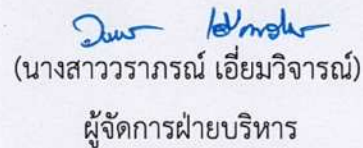 (นางสาววราภรณ์ เอี่ยมวิจารณ์)
ผู้จัดการฝ่ายบริหาร